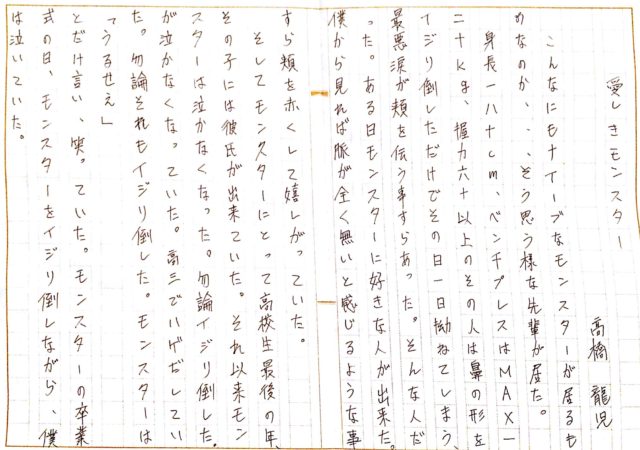 愛しきモンスター
高橋 龍児
こんなにもナイーブなモンスターが居るも
のなのか、、、そう思う様な先輩が居た。
身長一八十cm、ベンチプレスはMAX一
二十kg、握力六十以上のその人は鼻の形を
イジリ倒しただけでその日一日拗ねてしまう、
最悪涙が頬を伝う事すらあった。そんな人だ
った。ある日モンスターに好きな人が出来た。
僕から見れば脈が全く無いと感じるような事
すら頬を赤くして嬉しがっていた。
そしてモンスターにとって高校生最後の年、
その子には彼氏が出来ていた。それ以来モン
スターは泣かなくなった。勿論イジリ倒した。
が泣かなくなっていた。高三でハゲだしてい
た。勿論それもイジリ倒した。モンスターは
「うるせえ」
とだけ言い、笑っていた。モンスターの卒業
式の日、モンスターをイジリ倒しながら、僕
は泣いていた。